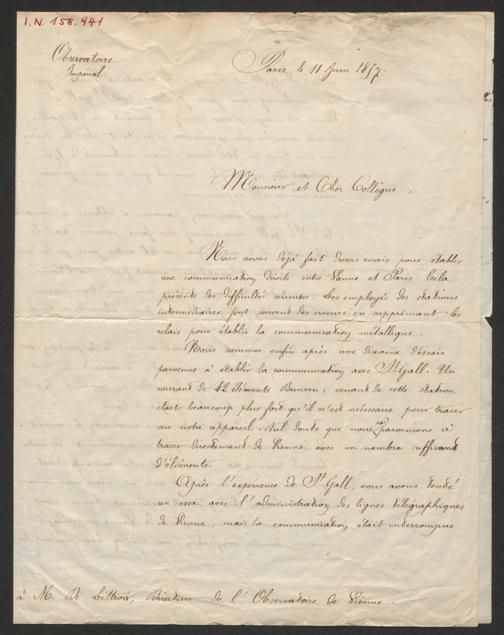 I.N. 158.941
Observatoire
Impérial
Paris, le 11 Juin 1857.
Monsieur et Cher Collègue,
Nous avons déjà fait divers essais pour établir
une communication directe entre Vienne et Paris. Cela
présente des difficultés sérieuses. Les employés des stations
intermédiaires font souvent des erreurs en supprimant les
relais pour établir la communication métallique.
Nous sommes enfin après une dixaine d'essais
parvenus à établir la communication avec St Gall. Un
courant de 42 éléments Bunsen, venant de cette station
était beaucoup plus fort qu'il n'est nécessaire pour tracer
sur notre appareil. Nul doute que nous ne parvenions à
tracer directement de Vienne avec un nombre suffisant
d'éléments.
Après l'expérience de St Gall, nous avons tenté
un essai avec l'administration des lignes télégraphiques
de Vienne, mais la communication était interrompue
à M. De Littrow, Directeur de l'Observatoire de Vienne.